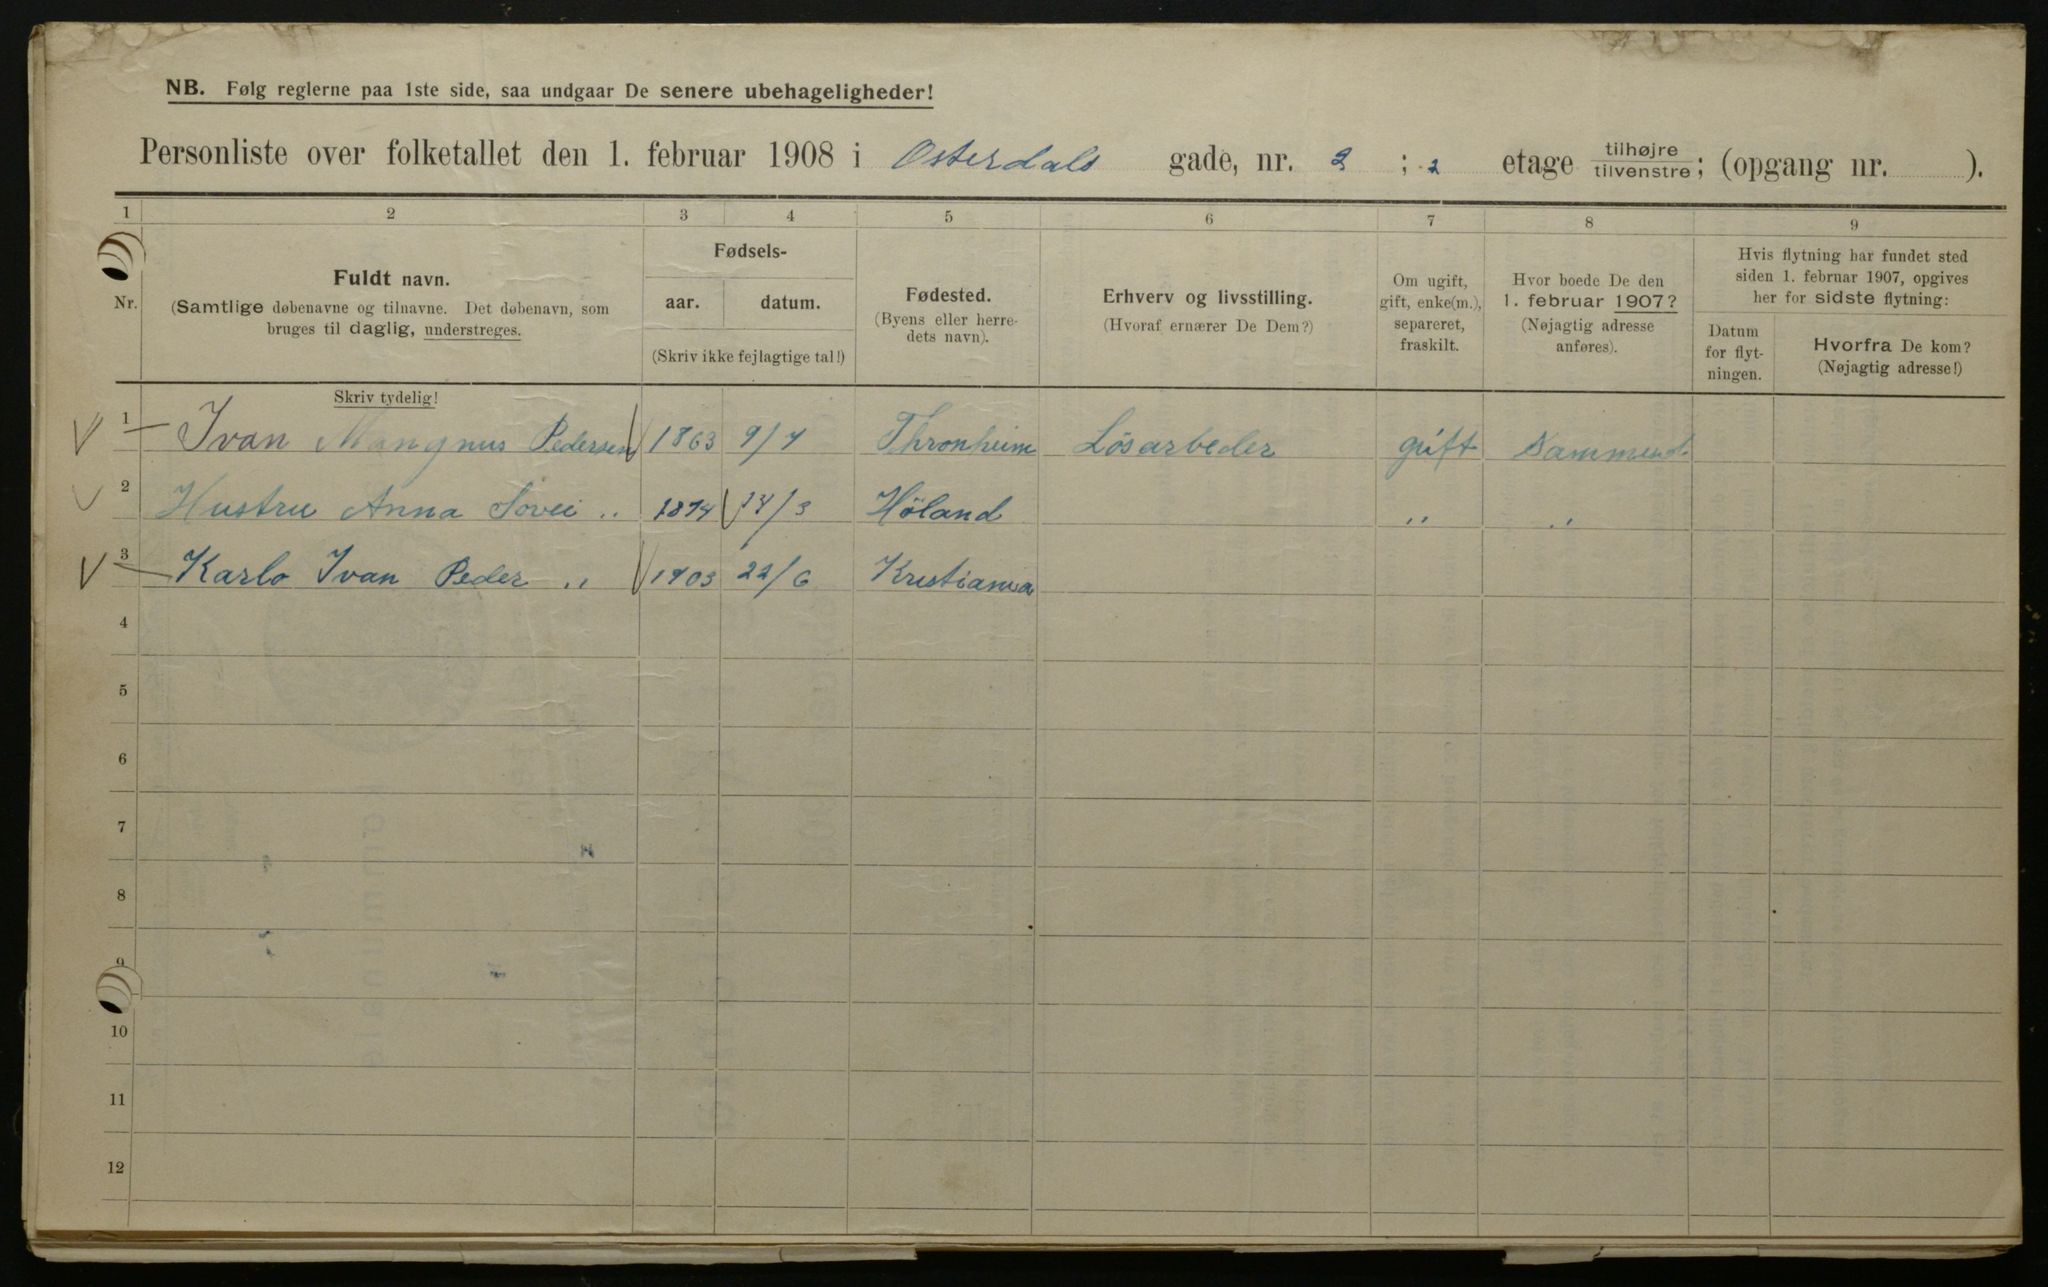 NB. Følg reglerne paa 1ste side, saa undgaar De senere ubehageligheder!
Personliste over folketallet den 1. februar 1908 i Osterdals gade, nr. 2 ; 2 etage tilhøjre/tilvenstre; (opgang nr. ).
1 2 3 4 5 6 7 8 9
Nr.
Fuldt navn.
(Samtlige døbenavne og tilnavne. Det døbenavn, som
bruges til daglig, understreges.
Skriv tydelig!
Fødsels-
aar. datum.
(Skriv ikke fejlagtige tal!)
Fødested.
(Byens eller herre-
dets navn).
Erhverv og livsstilling.
(Hvoraf ernærer De Dem?)
Om ugift,
gift, enke(m.),
separeret,
fraskilt.
Hvor boede De den
1. februar 1907?
(Nøjagtig adresse
anføres).
Hvis flytning har fundet sted
siden 1. februar 1907, opgives
her for sidste flytning:
Datum
for flyt-
ningen.
Hvorfra De kom?
(Nøjagtig adresse!)
1 Ivan Mangnus Pedersen 1863 9/7 Thronheim Lösarbeder gift Sammested
2 Hustru Anna " 1874 14/3 Höland " "
3 Karlo Ivan Peder " 1903 22/6 Kristiania
4
5
6
7
8
9
10
11
12